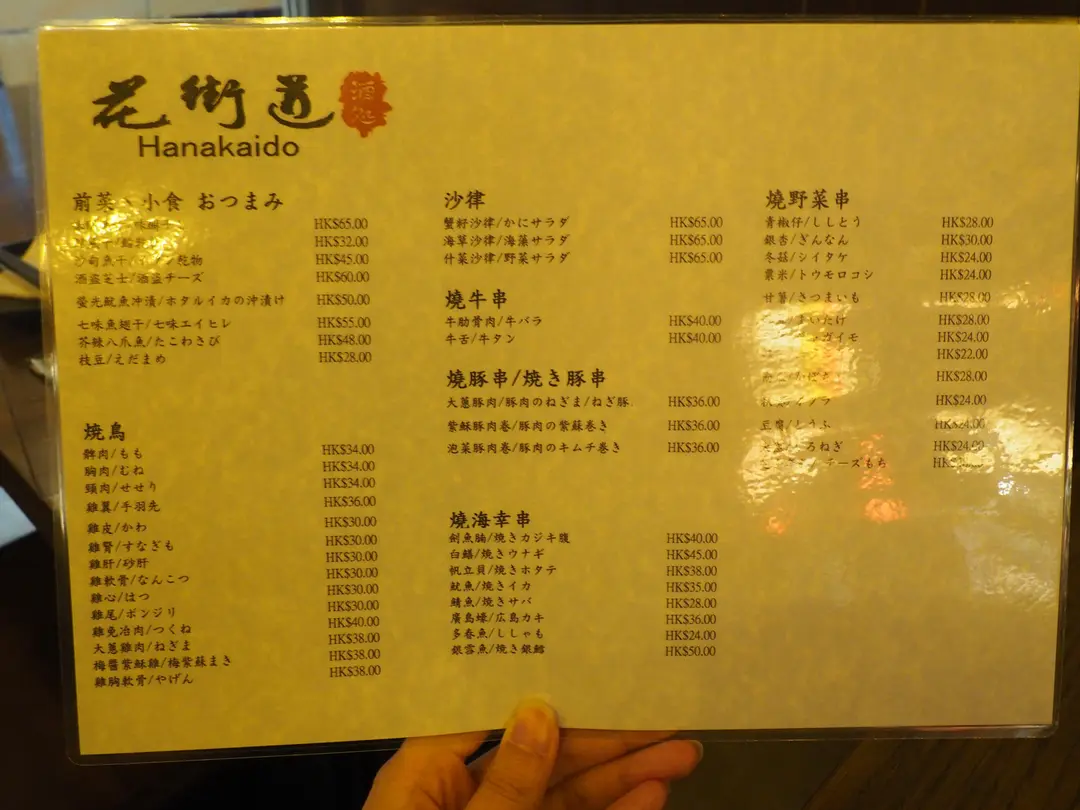 花街道 酒処
Hanakaido
前菜、小食 おつまみ
HK$65.00
HK$32.00
魚干 乾物 HK$45.00
酒盗芝士/酒盗チーズ HK$60.00
螢光魷魚沖漬/ホタルイカの沖漬け HK$50.00
七味魚翅干/七味エイヒレ HK$55.00
芥辣八爪魚/たこわさび HK$48.00
枝豆/えだまめ HK$28.00
焼鳥
髀肉/もも HK$34.00
胸肉/むね HK$34.00
頸肉/せせり HK$34.00
雞翼/手羽先 HK$36.00
雞皮/かわ HK$30.00
雞腎/すなぎも HK$30.00
雞肝/砂肝 HK$30.00
雞軟骨/なんこつ HK$30.00
雞心/はつ HK$30.00
雞尾/ボンジリ HK$30.00
雞免冶肉/つくね HK$40.00
大蔥雞肉/ねぎま HK$38.00
梅醬紫穌雞/梅紫蘇まき HK$38.00
雞胸軟骨/やげん HK$38.00
沙律
蟹籽沙律/かにサラダ HK$65.00
海草沙律/海藻サラダ HK$65.00
什菜沙律/野菜サラダ HK$65.00
燒牛串
牛肋骨肉/牛バラ HK$40.00
牛舌/牛タン HK$40.00
燒豚串/焼き豚串
大蔥豚肉/豚肉のねぎま/ねぎ豚. HK$36.00
紫穌豚肉卷/豚肉の紫蘇巻き HK$36.00
泡菜豚肉卷/豚肉のキムチ巻き HK$36.00
燒海幸串
劍魚腩/焼きカジキ腹 HK$40.00
白鱔/焼きウナギ HK$45.00
帆立貝/焼きホタテ HK$38.00
魷魚/焼きイカ HK$35.00
鯖魚/焼きサバ HK$28.00
廣島蠔/広島カキ HK$36.00
多春魚/ししゃも HK$24.00
銀雪魚/焼き銀鱈 HK$50.00
燒野菜串
青椒仔/ししとう HK$28.00
銀杏/ぎんなん HK$30.00
冬菇/シイタケ HK$24.00
粟米/トウモロコシ HK$24.00
甘薯/さつまいも HK$28.00
まいたけ HK$28.00
ガイモ HK$24.00
HK$22.00
HK$28.00
HK$24.00
豆腐/とうふ HK$24.00
ろねぎ HK$24.00
チーズもち